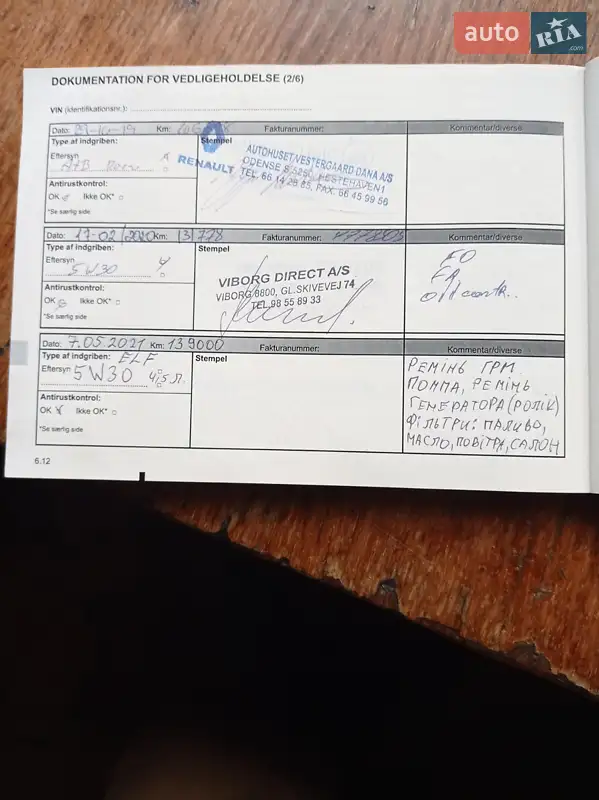 auto RIA .com
DOKUMENTATION FOR VEDLIGEHOLDELSE (2/6)
VIN (identifikationsnr.):
Dato: Km: Fakturanummer: Kommentar/diverse
Type af indgriben: Stempel
Eftersyn
A+B
RENAULT
AUTOHUSET/VESTERGAARD DANA A/S
ODENSE S 5260, HESTEHAVEN1
TEL. 66 14 28 85, FAX. 66 45 99 56
Antirustkontrol:
OK Ikke OK*
*Se særlig side
Dato: 17-02/2020 Km: 131778 Fakturanummer: Kommentar/diverse
Type af indgriben: Stempel
Eftersyn
5W30
VIBORG DIRECT A/S
VIBORG 8800, GL.SKIVEVEJ 74
TEL.98 55 89 33
Antirustkontrol:
OK Ikke OK*
*Se særlig side
Dato: 7.05.2021 Km: 139000 Fakturanummer: Kommentar/diverse
Type af indgriben: ELF Stempel
Eftersyn 5W30 4,5 л.
Antirustkontrol:
OK Ikke OK*
*Se særlig side
РЕМІНЬ ГРМ
ПОМПА, РЕМІНЬ
ГЕНЕРАТОРА (РОЛІК)
ФІЛЬТРИ: ПАЛИВО,
МАСЛО, ПОВІТРЯ, САЛОН
6.12